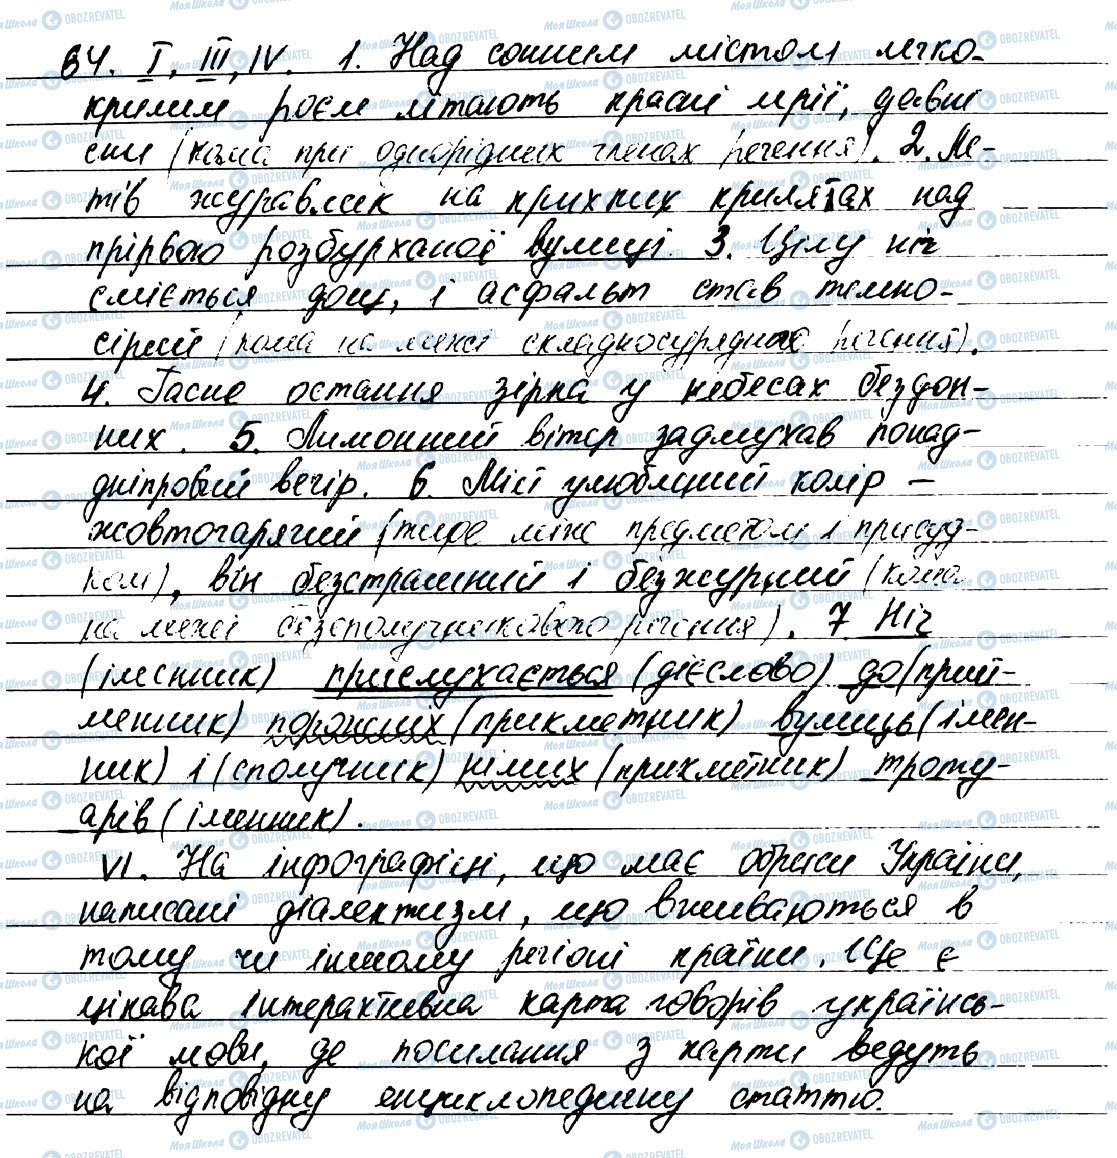 84. I, III, IV. 1. Над сонним містом легко-
крилим роєм літають красні мрії, давні
сни (кома при однорідних членах речення). 2. Ле-
тів журавлик на крихких крилятах над
прірвою розбурханої вулиці. 3. Цілу ніч
сміється дощ, і асфальт став темно-
сірий (кома на межі складносурядного речення).
4. Гасне остання зірка у небесах бездон-
них. 5. Лимонний вітер задмухав понад-
дніпровий вечір. 6. Мій улюблений колір –
жовтогарячий (тире між предметом і присуд-
ком), він безстрашний і безжурний (кома
на межі безсполучникового речення). 7. Ніч
(іменник) прислухається (дієслово) до (прий-
менник) порожніх (прикметник) вулиць (імен-
ник) і (сполучник) німих (прикметник) троту-
арів (іменник).
VI. На інфографіці, що має обриси України,
написані діалектизм, що вживаються в
тому чи іншому регіоні країни. Ще є
цікава інтерактивна карта говорів українсь-
кої мови, де посилання з карти ведуть
на відповідну енциклопедичну статтю.